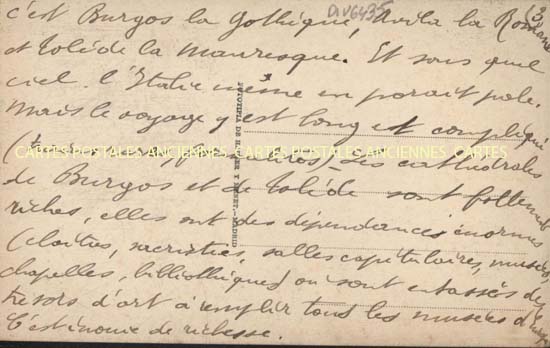 DIV6435
(3)
c'est Burgos la gothique, Avila la Romane
et Tolède la mauresque. Et sous quel
ciel. l'Italie même en parait pale.
Mais le voyage y est long et compliqué
CARTES POSTALES ANCIENNES CARTES POSTALES ANCIENNES CARTES
Les cathédrales
de Burgos et de Tolède sont follement
riches, elles ont des dépendances énormes
(cloitres, sacristie, salles capitulaires, musées
chapelles, bibliothèques) où sont entassés des
trésors d'art à remplir tous les musées d'Europe
C'est inouie de richesse.
FOTOTIPIA DE HAUSER Y MENET.-MADRID